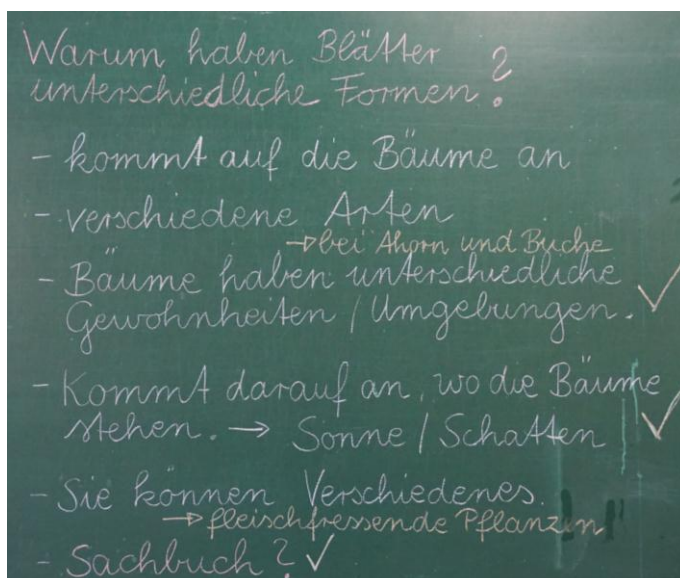 Warum haben Blätter
unterschiedliche Formen?
- kommt auf die Bäume an
- verschiedene Arten
→ bei Ahorn und Buche
- Bäume haben unterschiedliche
Gewohnheiten / Umgebungen. ✓
- Kommt darauf an, wo die Bäume
stehen. → Sonne / Schatten ✓
- Sie können Verschiedenes.
→ fleischfressende Pflanzen
- Sachbuch? ✓